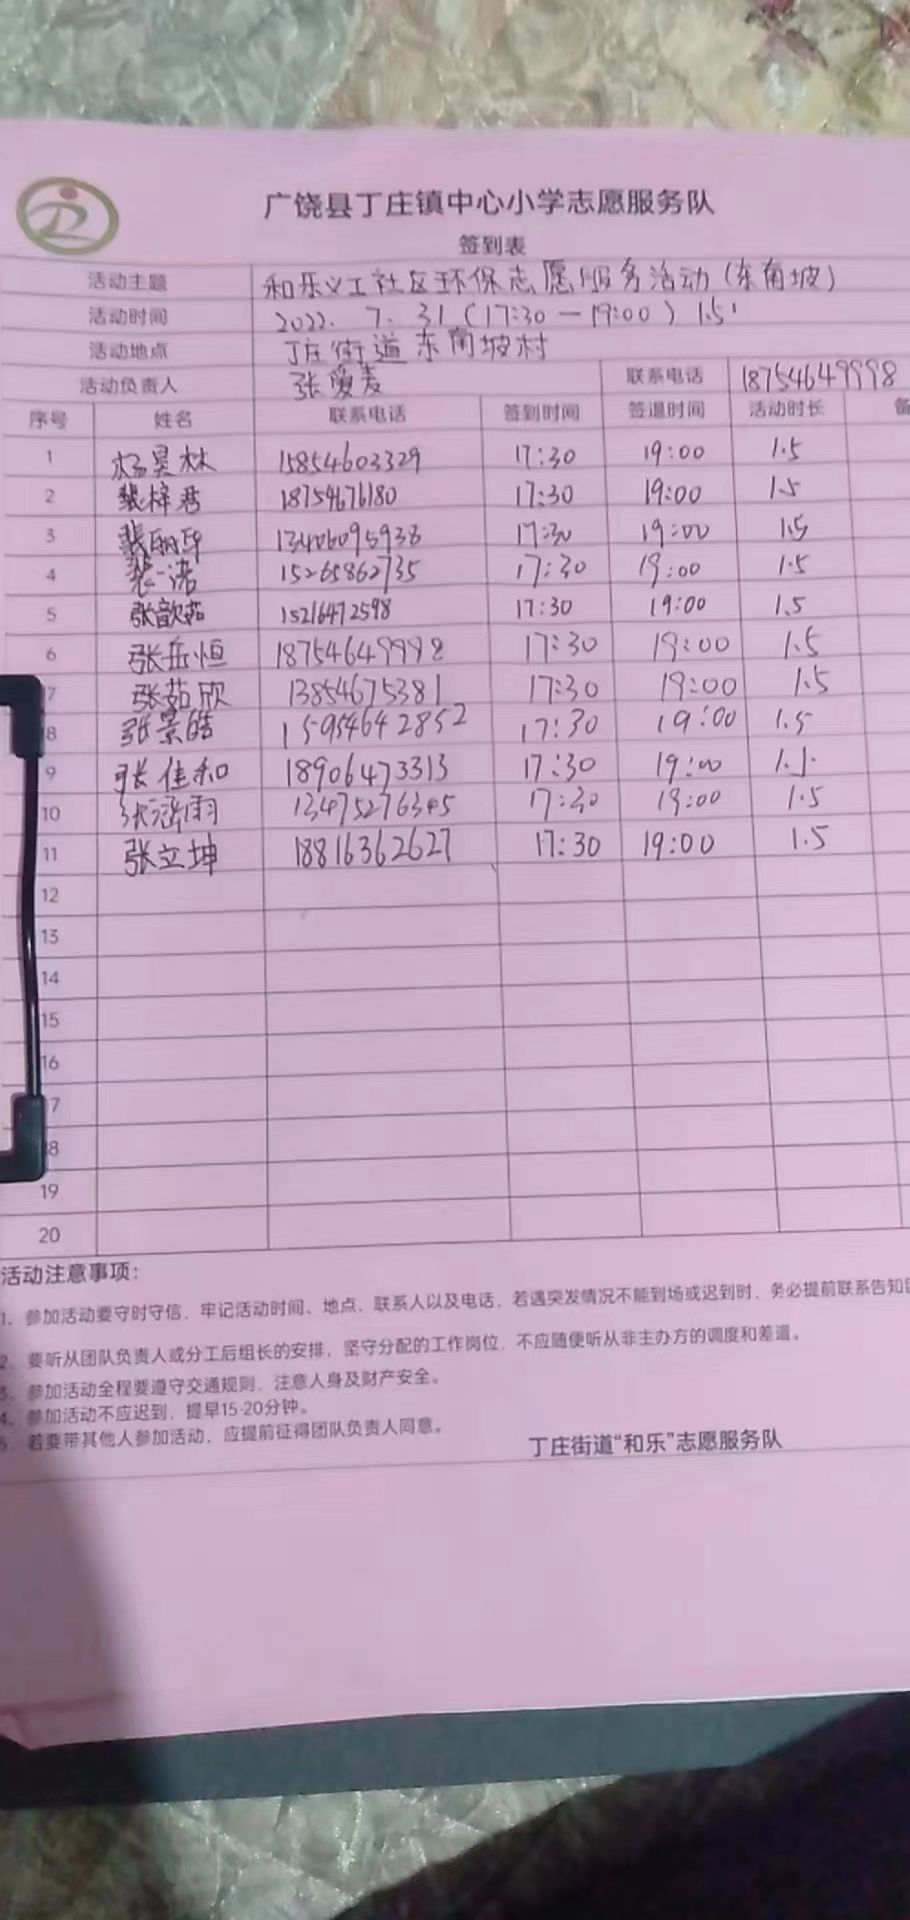 广饶县丁庄镇中心小学志愿服务队
签到表
活动主题 和乐义工社区环保志愿服务活动(东南坡)
活动时间 2022.7.31(17:30-19:00)1.5'
活动地点 丁庄街道东南坡村
活动负责人 张爱 联系电话 18754649998
序号 姓名 联系电话 签到时间 签退时间 活动时长 备
1 杨昊林 15854603329 17:30 19:00 1.5
2 裴梓君 18754676180 17:30 19:00 1.5
3 裴丽华 13406095938 17:30 19:00 1.5
4 裴一诺 15265862735 17:30 19:00 1.5
5 张歆茹 15216472598 17:30 19:00 1.5
6 张岳恒 18754649998 17:30 19:00 1.5
7 张茹欣 13854675381 17:30 19:00 1.5
8 张景皓 15954642852 17:30 19:00 1.5
9 张佳和 18906473313 17:30 19:00 1.5
10 张涵雨 13475276345 17:30 19:00 1.5
11 张立坤 18816362627 17:30 19:00 1.5
12
13
14
15
16
7
8
19
20
活动注意事项:
1、参加活动要守时守信,牢记活动时间、地点、联系人以及电话,若遇突发情况不能到场或迟到时,务必提前联系告知
2、要听从团队负责人或分工后组长的安排,坚守分配的工作岗位,不应随便听从非主办方的调度和差遣。
3、参加活动全程要遵守交通规则,注意人身及财产安全。
4、参加活动不应迟到,提早15-20分钟。
5、若要带其他人参加活动,应提前征得团队负责人同意。
丁庄街道“和乐”志愿服务队